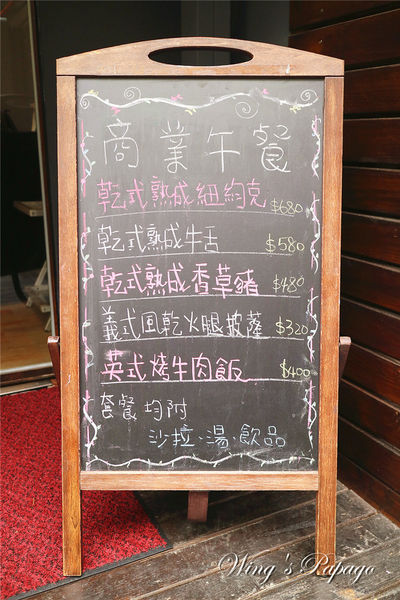 商業午餐
乾式熟成紐約克 $680
乾式熟成牛舌 $580
乾式熟成香草豬 $480
義式風乾火腿披薩 $320
英式烤牛肉飯 $400
套餐均附
沙拉、湯、飲品
Wing's Papago